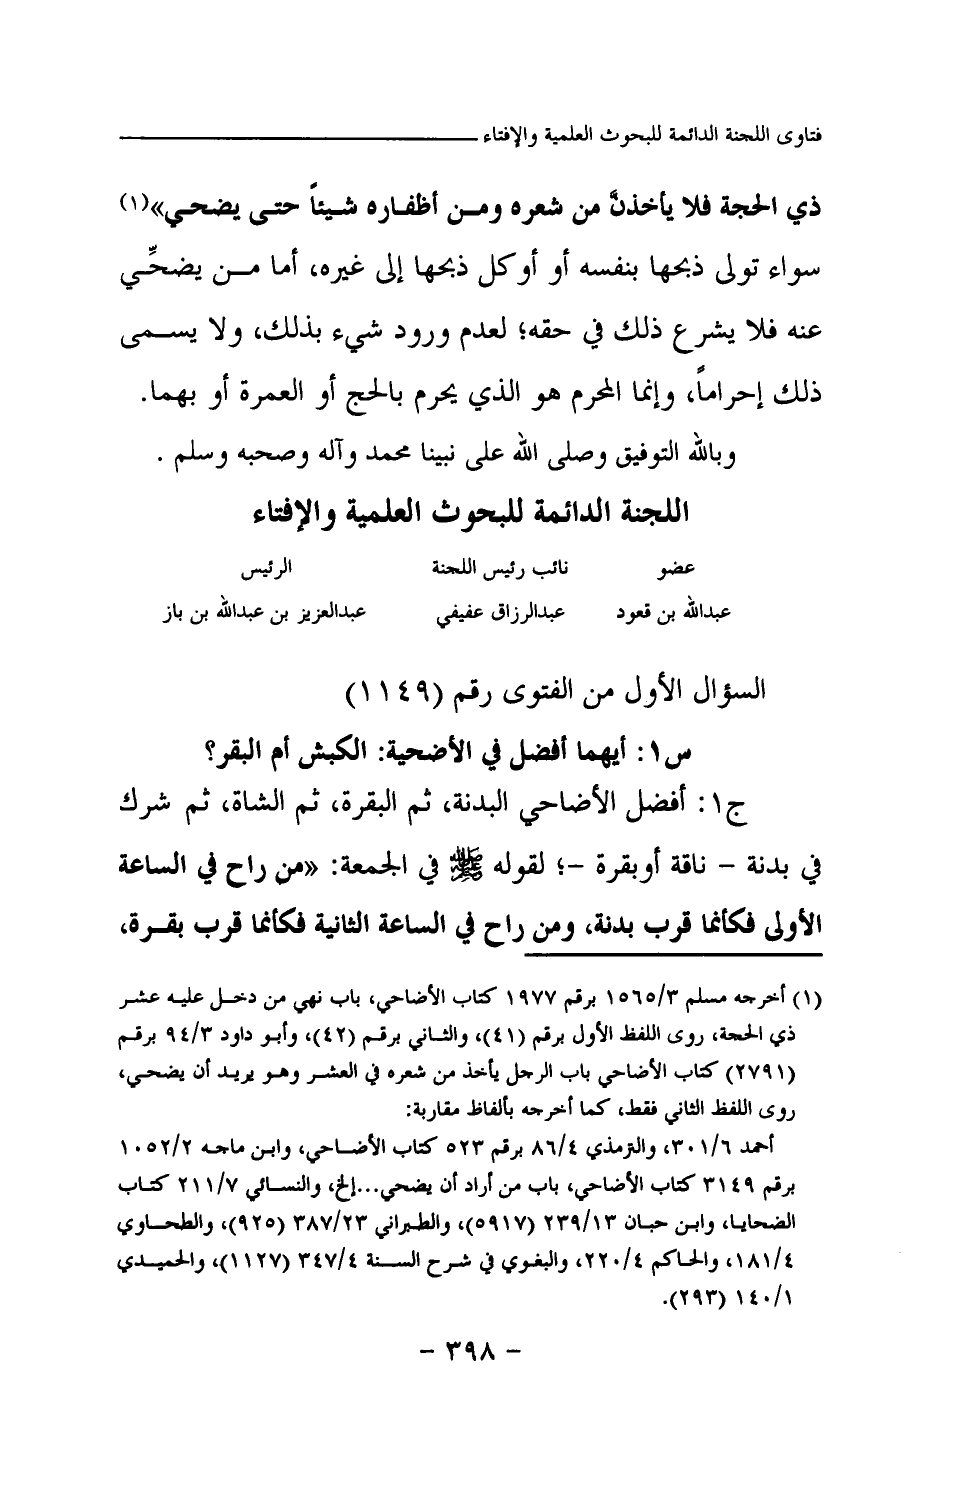 فتاوى اللجنة الدائمة للبحوث العلمية والإفتاء
ذي الحجة فلا يأخذنَّ من شعره ومن أظفاره شيئاً حتى يضحي»(١)
سواء تولى ذبحها بنفسه أو أوكل ذبحها إلى غيره، أما من يضحِّي
عنه فلا يشرع ذلك في حقه؛ لعدم ورود شيء بذلك، ولا يسمى
ذلك إحراماً، وإنما المحرم هو الذي يحرم بالحج أو العمرة أو بهما.
وبالله التوفيق وصلى الله على نبينا محمد وآله وصحبه وسلم .
اللجنة الدائمة للبحوث العلمية والإفتاء
عضو نائب رئيس اللجنة الرئيس
عبدالله بن قعود عبدالرزاق عفيفي عبدالعزيز بن عبدالله بن باز
السؤال الأول من الفتوى رقم (١١٤٩)
س١: أيهما أفضل في الأضحية: الكبش أم البقر؟
ج١: أفضل الأضاحي البدنة، ثم البقرة، ثم الشاة، ثم شرك
في بدنة – ناقة أوبقرة –؛ لقوله ﷺ في الجمعة: «من راح في الساعة
الأولى فكأنما قرب بدنة، ومن راح في الساعة الثانية فكأنما قرب بقرة،
(١) أخرجه مسلم ١٥٦٥/٣ برقم ١٩٧٧ كتاب الأضاحي، باب نهي من دخل عليه عشر
ذي الحجة، روى اللفظ الأول برقم (٤١)، والثاني برقم (٤٢)، وأبو داود ٩٤/٣ برقم
(٢٧٩١) كتاب الأضاحي باب الرجل يأخذ من شعره في العشر وهو يريد أن يضحي،
روى اللفظ الثاني فقط، كما أخرجه بألفاظ مقاربة:
أحمد ٣٠١/٦، والترمذي ٨٦/٤ برقم ٥٢٣ كتاب الأضاحي، وابن ماجه ١٠٥٢/٢
برقم ٣١٤٩ كتاب الأضاحي، باب من أراد أن يضحي...إلخ، والنسائي ٢١١/٧ كتاب
الضحايا، وابن حبان ٢٣٩/١٣ (٥٩١٧)، والطبراني ٣٨٧/٢٣ (٩٢٥)، والطحاوي
١٨١/٤، والحاكم ٢٢٠/٤، والبغوي في شرح السنة ٣٤٧/٤ (١١٢٧)، والحميدي
١٤٠/١ (٢٩٣).
– ٣٩٨ –